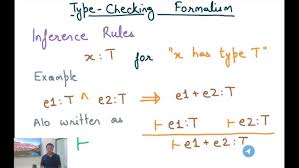 Type-Checking Formalism
Inference Rules
x:T for "x has type T"
Example
e1:T ^ e2:T ⟹ e1+e2:T
Also written as ⊢e1:T ⊢e2:T
⊢ ⊢e1+e2:T